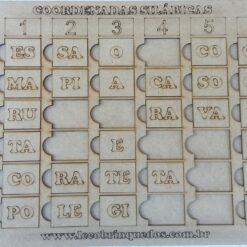 COORDENADAS SILÁBICAS
1 2 3 4 5
ES SA O CO
MA PI A CA SO
RU RA VA
TA E
CO RA TE TA
PO LE GI
www.lecobrinquedos.com.br